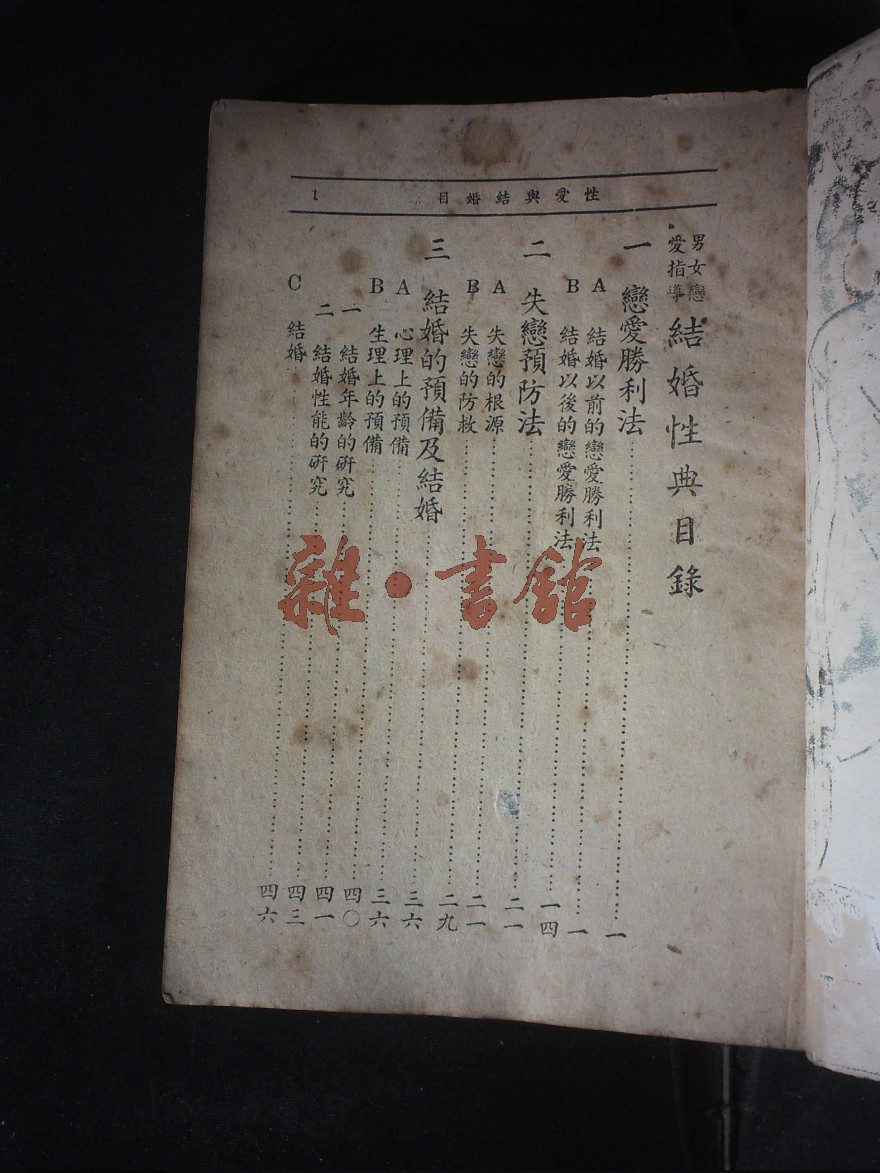 性愛與結婚目 1
男女戀愛指導 結婚性典目錄
一 戀愛勝利法……一
A 結婚以前的戀愛勝利法……一
B 結婚以後的戀愛勝利法……一四
二 失戀預防法……二一
A 失戀的根源……二一
B 失戀的防救……二九
三 結婚的預備及結婚……三六
A 心理上的預備……三六
B 生理上的預備……四〇
一 結婚年齡的研究……四一
二 結婚性能的研究……四三
C 結婚……四六
雜·書館